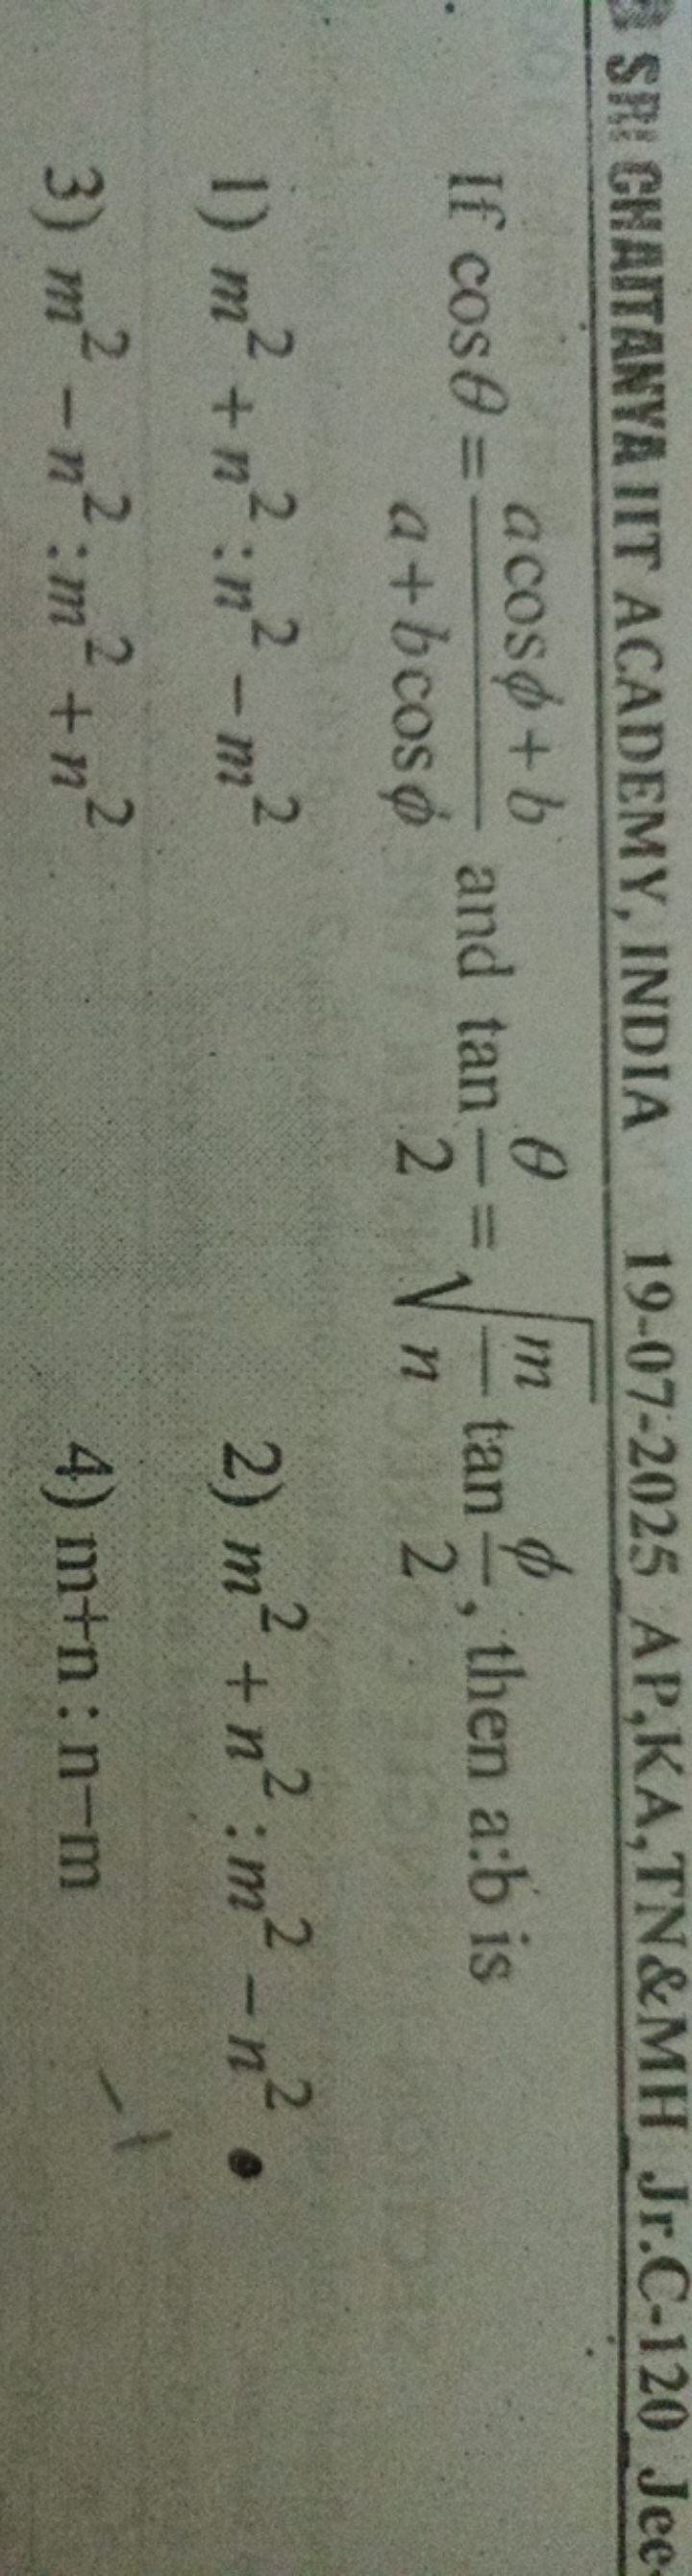 SRI CHAITANYA IIT ACADEMY, INDIA 19-07-2025_AP,KA,TN&MH_Jr.C-120_Jee-
If cosθ = (a cosϕ + b)/(a + b cosϕ) and tan θ/2 = √(m/n) tan ϕ/2, then a:b is
1) m² + n² : n² − m² 2) m² + n² : m² − n²
3) m² − n² : m² + n² 4) m+n : n−m